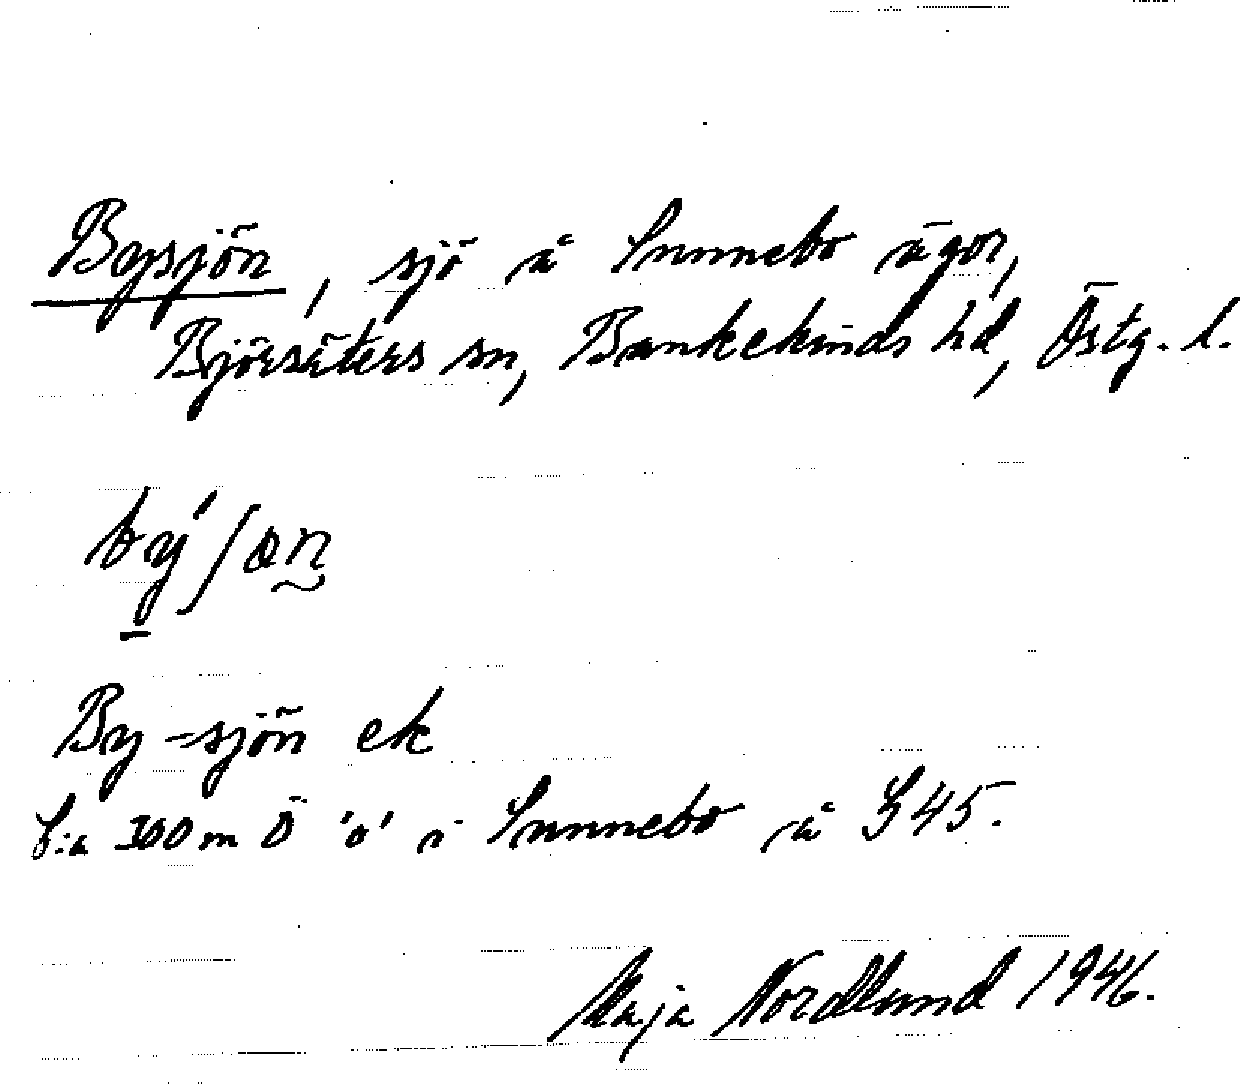 Bysjön, sjö å Sunnebo ägor,
Björsäters sn, Bankekinds hd, Östg. l.
By-sjön ek
C:a 300 m Ö 'o' i Sunnebo å S45.
Maja Nordlund 1946.